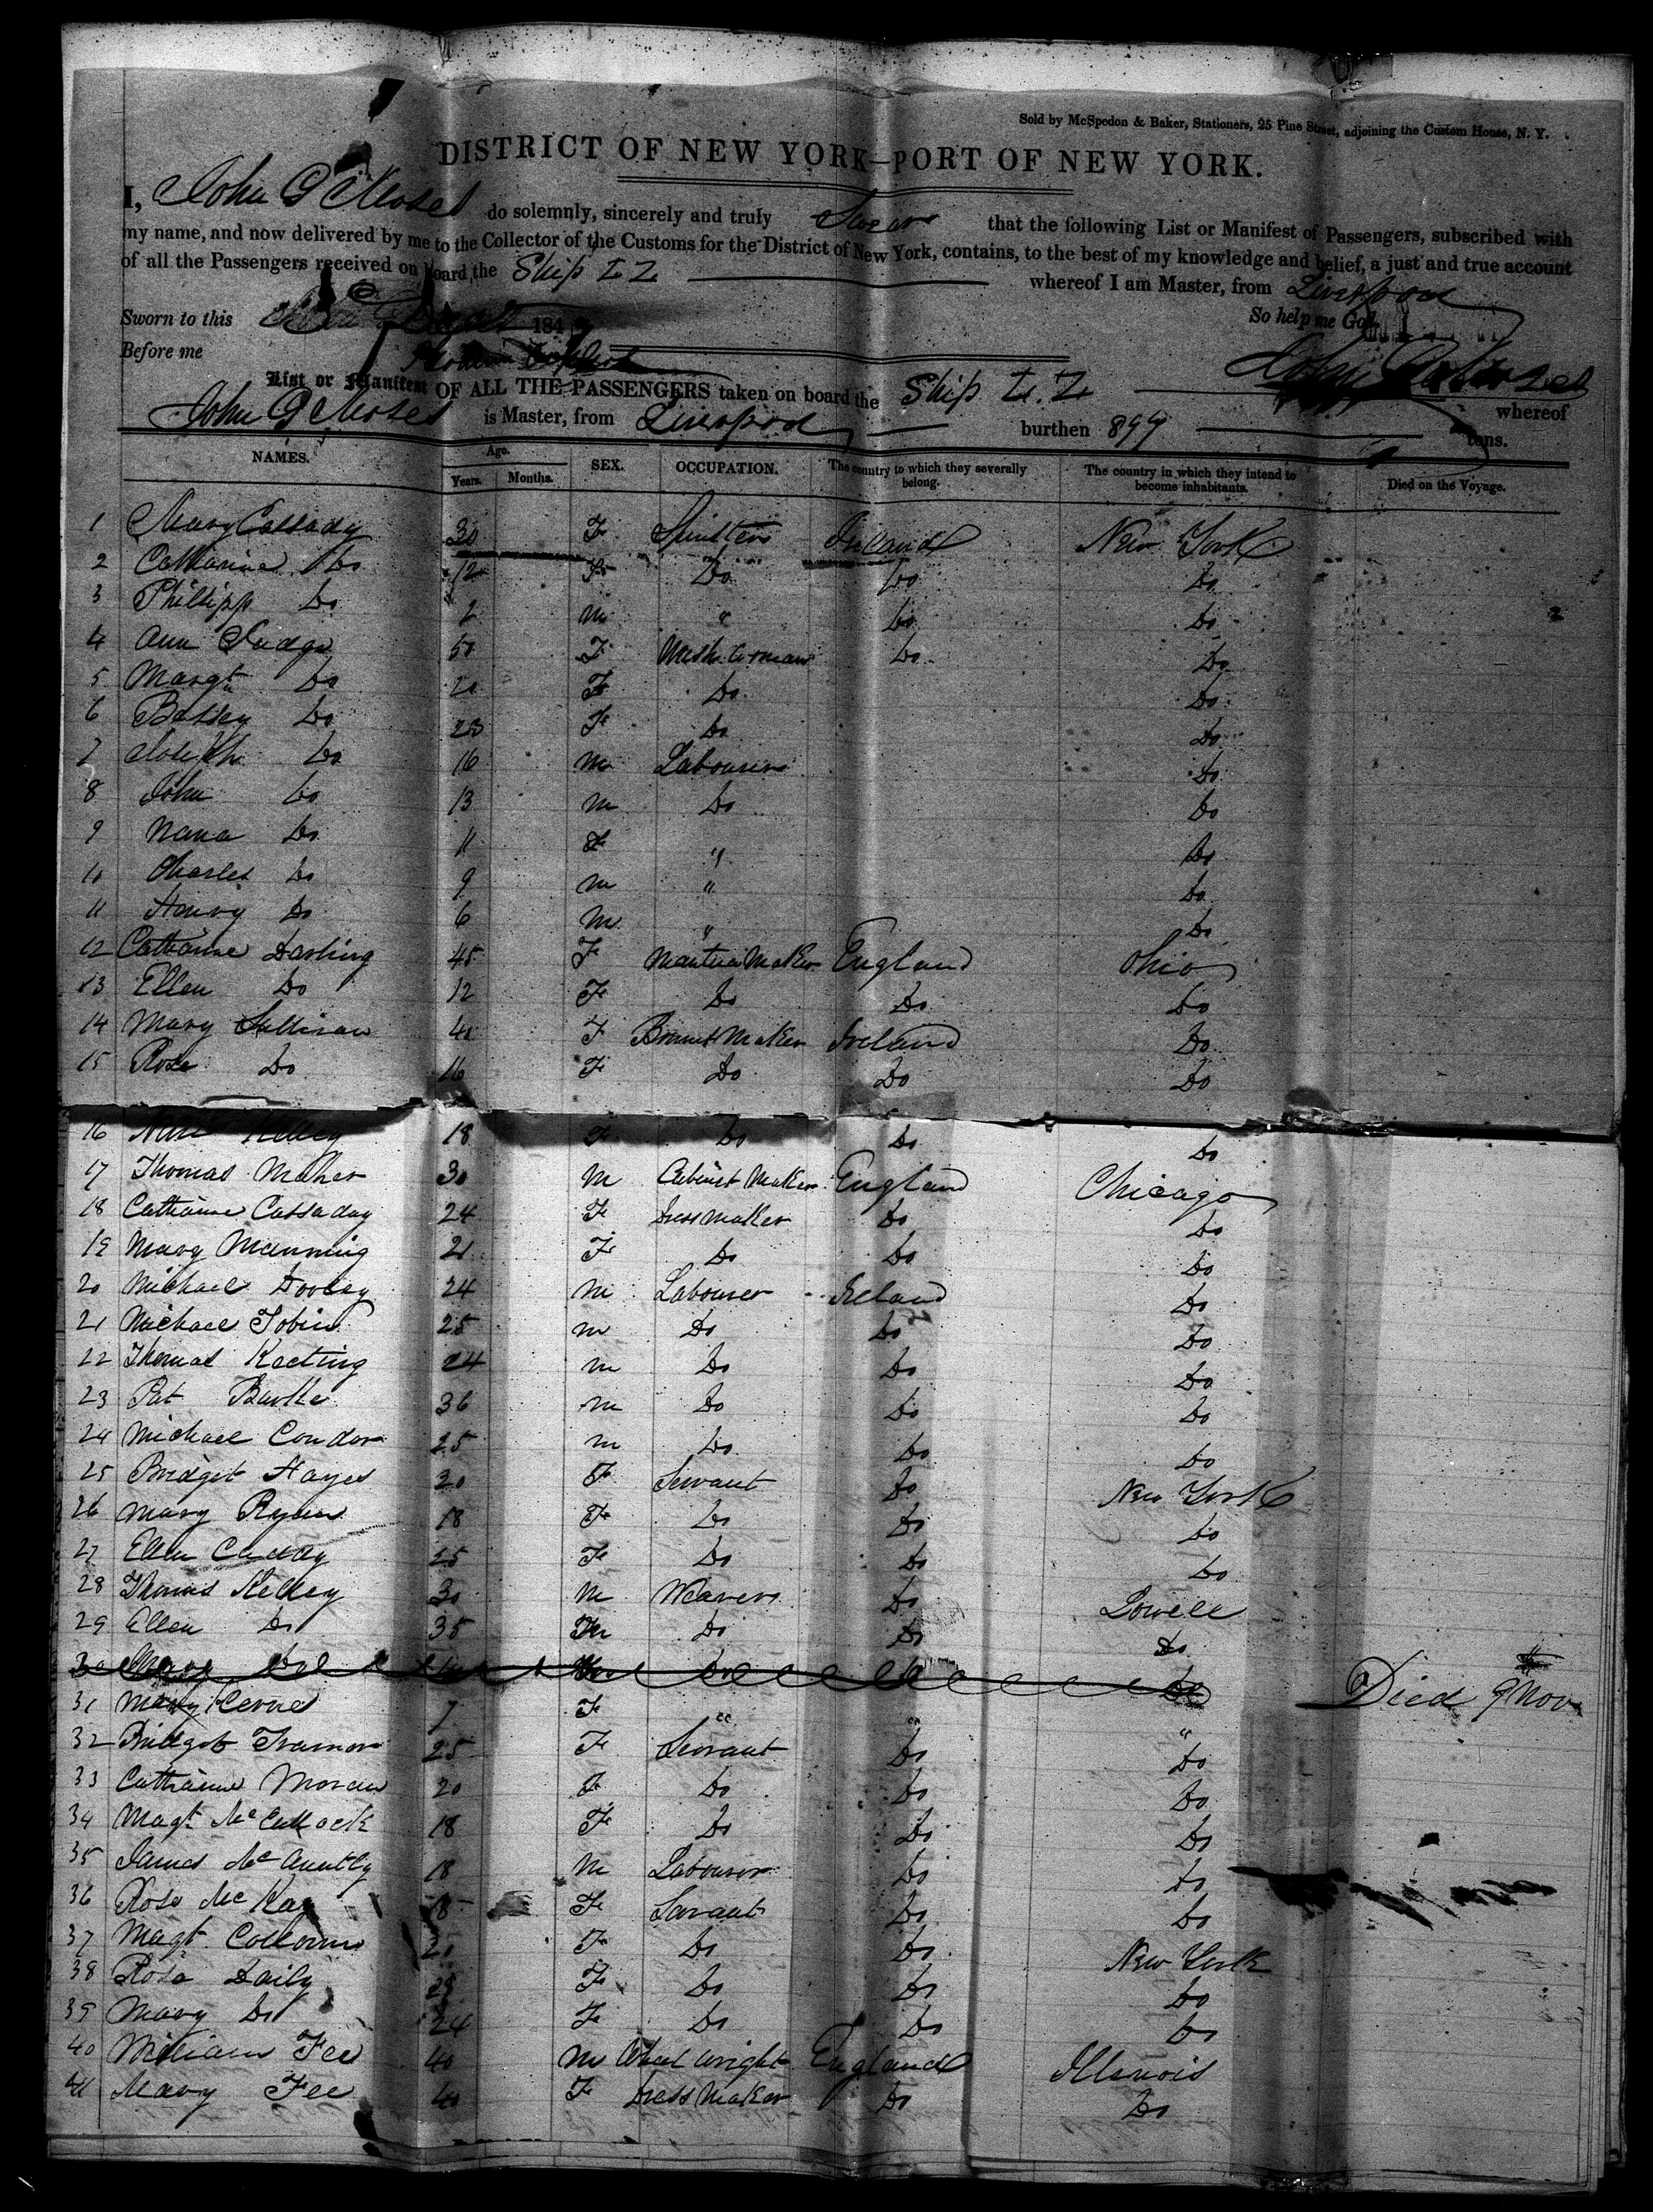 Sold by McSpedon & Baker, Stationers, 25 Pine Street, adjoining the Custom House, N. Y.
DISTRICT OF NEW YORK—PORT OF NEW YORK.
I, John G Moses do solemnly, sincerely and truly Swear that the following List or Manifest of Passengers, subscribed with
my name, and now delivered by me to the Collector of the Customs for the District of New York, contains, to the best of my knowledge and belief, a just and true account
of all the Passengers received on board the Ship Z.Z. whereof I am Master, from Liverpool
Sworn to this 184 So help me God.
Before me
List or Manifest OF ALL THE PASSENGERS taken on board the Ship Z.Z. whereof
John G Moses is Master, from Liverpool burthen 899 tons.
NAMES. Age. SEX. OCCUPATION. The country to which they severally belong. The country in which they intend to become inhabitants. Died on the Voyage.
Years. Months.
1 Mary Cassady 30 F Spinster Ireland New York
2 Catharine Do 12 F Do Do Do
3 Phillipp Do 2 m " Do Do
4 Ann Judge 50 F Wash Woman Do Do
5 Margt Do 20 F Do Do
6 Betsey Do 23 F Do Do
7 Joseph Do 16 m Labourer Do
8 John Do 13 m Do Do
9 Nana Do 11 F " Do
10 Charles Do 9 m " Do
11 Henry Do 6 m " Do
12 Catharine Darling 45 F Mantua Maker England Ohio
13 Ellen Do 12 F Do Do Do
14 Mary Sullivan 40 F Bonnet Maker Ireland Do
15 Rose Do 16 F Do Do Do
16 Kelley 18 F Do Do Do
17 Thomas Maher 30 m Cabinet Maker England Chicago
18 Catharine Cassaday 24 F Dress Maker Do Do
19 Mary Manning 21 F Do Do Do
20 Michael Dooley 24 m Labourer Ireland Do
21 Michael Tobin 25 m Do Do Do
22 Thomas Keeting 24 m Do Do Do
23 Pat Burke 36 m Do Do Do
24 Michael Condor 25 m Do Do Do
25 Bridget Hayes 20 F Servant Do New York
26 Mary Ryan 18 F Do Do Do
27 Ellen 25 F Do Do Do
28 Thomas Kelley 30 m Weaver Do Lowell
29 Ellen Do 35 F Do Do Do
30 Mary Do Do Do Died 9th Nov
31 Mary Kerne 7 F " " "
32 Bridget Tramor 25 F Servant Do Do
33 Catharine Moran 20 F Do Do Do
34 Magt McCullock 18 F Do Do Do
35 James 18 m Labourer Do Do
36 Rose McKay 18 F Servant Do Do
37 Magt 20 F Do Do New York
38 Rose Daily 28 F Do Do Do
39 Mary Do 24 F Do Do Do
40 William Fee 40 m Wheel wright England Illenois
41 Mary Fee 40 F Dress Maker Do Do